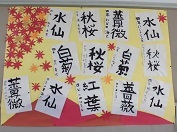 水仙
秋桜
薔薇
水仙
秋桜
白菊
白菊
秋桜
薔薇
水仙
紅葉
薔薇
水仙